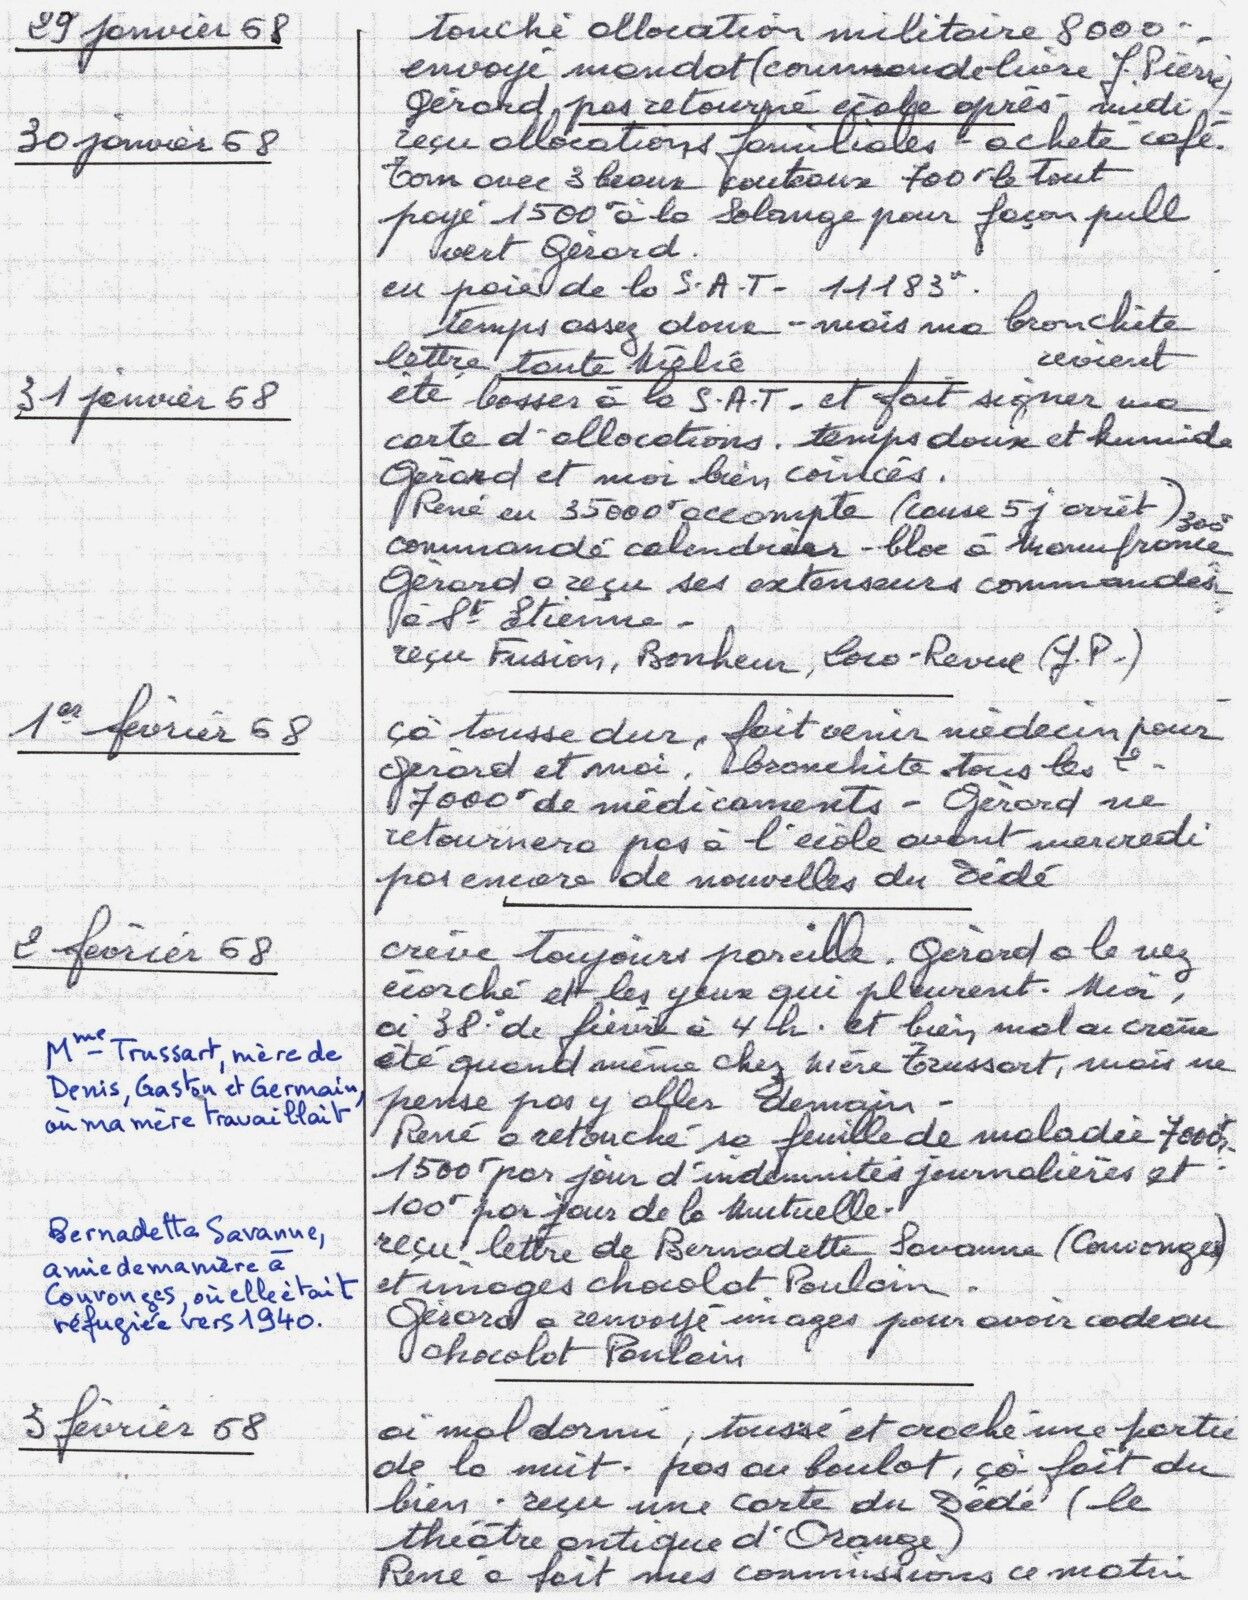 29 janvier 68
touché allocation militaire 8000-
envoyé mandat (commande livre J. Pierre)
Gérard pas retourné école après-midi
30 janvier 68
reçu allocations familiales - acheté café.
Tom avec 3 beaux couteaux 700F le tout
payé 1500F à la Solange pour façon pull
vert Gérard.
eu paie de la S.A.T- 11183F.
temps assez doux - mais ma bronchite
revient
lettre tante Mélie
31 janvier 68
été bosser à la S.A.T. et fait signer ma
carte d'allocations. temps doux et humide
Gérard et moi bien coincés.
René eu 35000F accompte (cause 5 j arrêt)
300F
commandé calendrier-bloc à Manufrance
Gérard a reçu ses extenseurs commandés
à St Etienne -
reçu Fusion, Bonheur, Loco-Revue (J.P.)
1er février 68
çà tousse dur, fait venir médecin pour
Gérard et moi. bronchite tous les 2.
7000F de médicaments - Gérard ne
retournera pas à l'école avant mercredi
pas encore de nouvelles du Dédé
2 février 68
crève toujours pareille. Gérard a le nez
écorché et les yeux qui pleurent. Moi,
ai 38° de fièvre à 4 h. et bien mal au crâne
été quand même chez mère Trussart, mais ne
pense pas y aller demain -
Mme Trussart, mère de
Denis, Gaston et Germain,
où ma mère travaillait
René a retouché sa feuille de maladie 7000F-
1500F par jour d'indemnités journalières et
100F par jour de la Mutuelle.
reçu lettre de Bernadette Savanne (Couvonges)
et images chocolat Poulain.
Gérard a renvoyé images pour avoir cadeau
chocolat Poulain
Bernadette Savanne,
amie de ma mère à
Couvonges, où elle était
réfugiée vers 1940.
3 février 68
ai mal dormi, toussé et craché une partie
de la nuit. pas au boulot, çà fait du
bien. reçu une carte du Dédé (le
théâtre antique d'Orange)
René a fait mes commissions ce matin